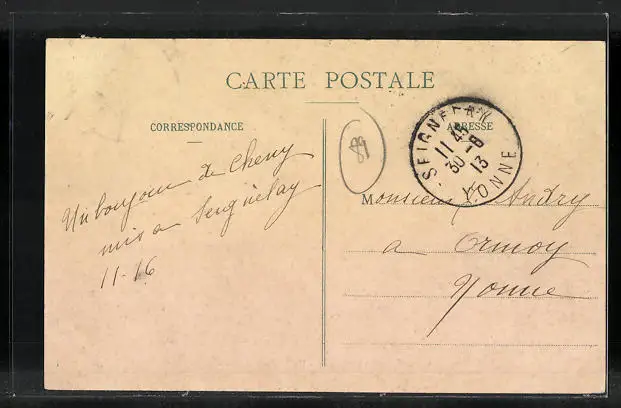 CARTE POSTALE
CORRESPONDANCE
ADRESSE
89
SEIGNELAY
11 45
30 -8
13
YONNE
Un bonjour de Cheny
mis a Seignelay
11-16
Monsieur Andry
a Ormoy
Yonne